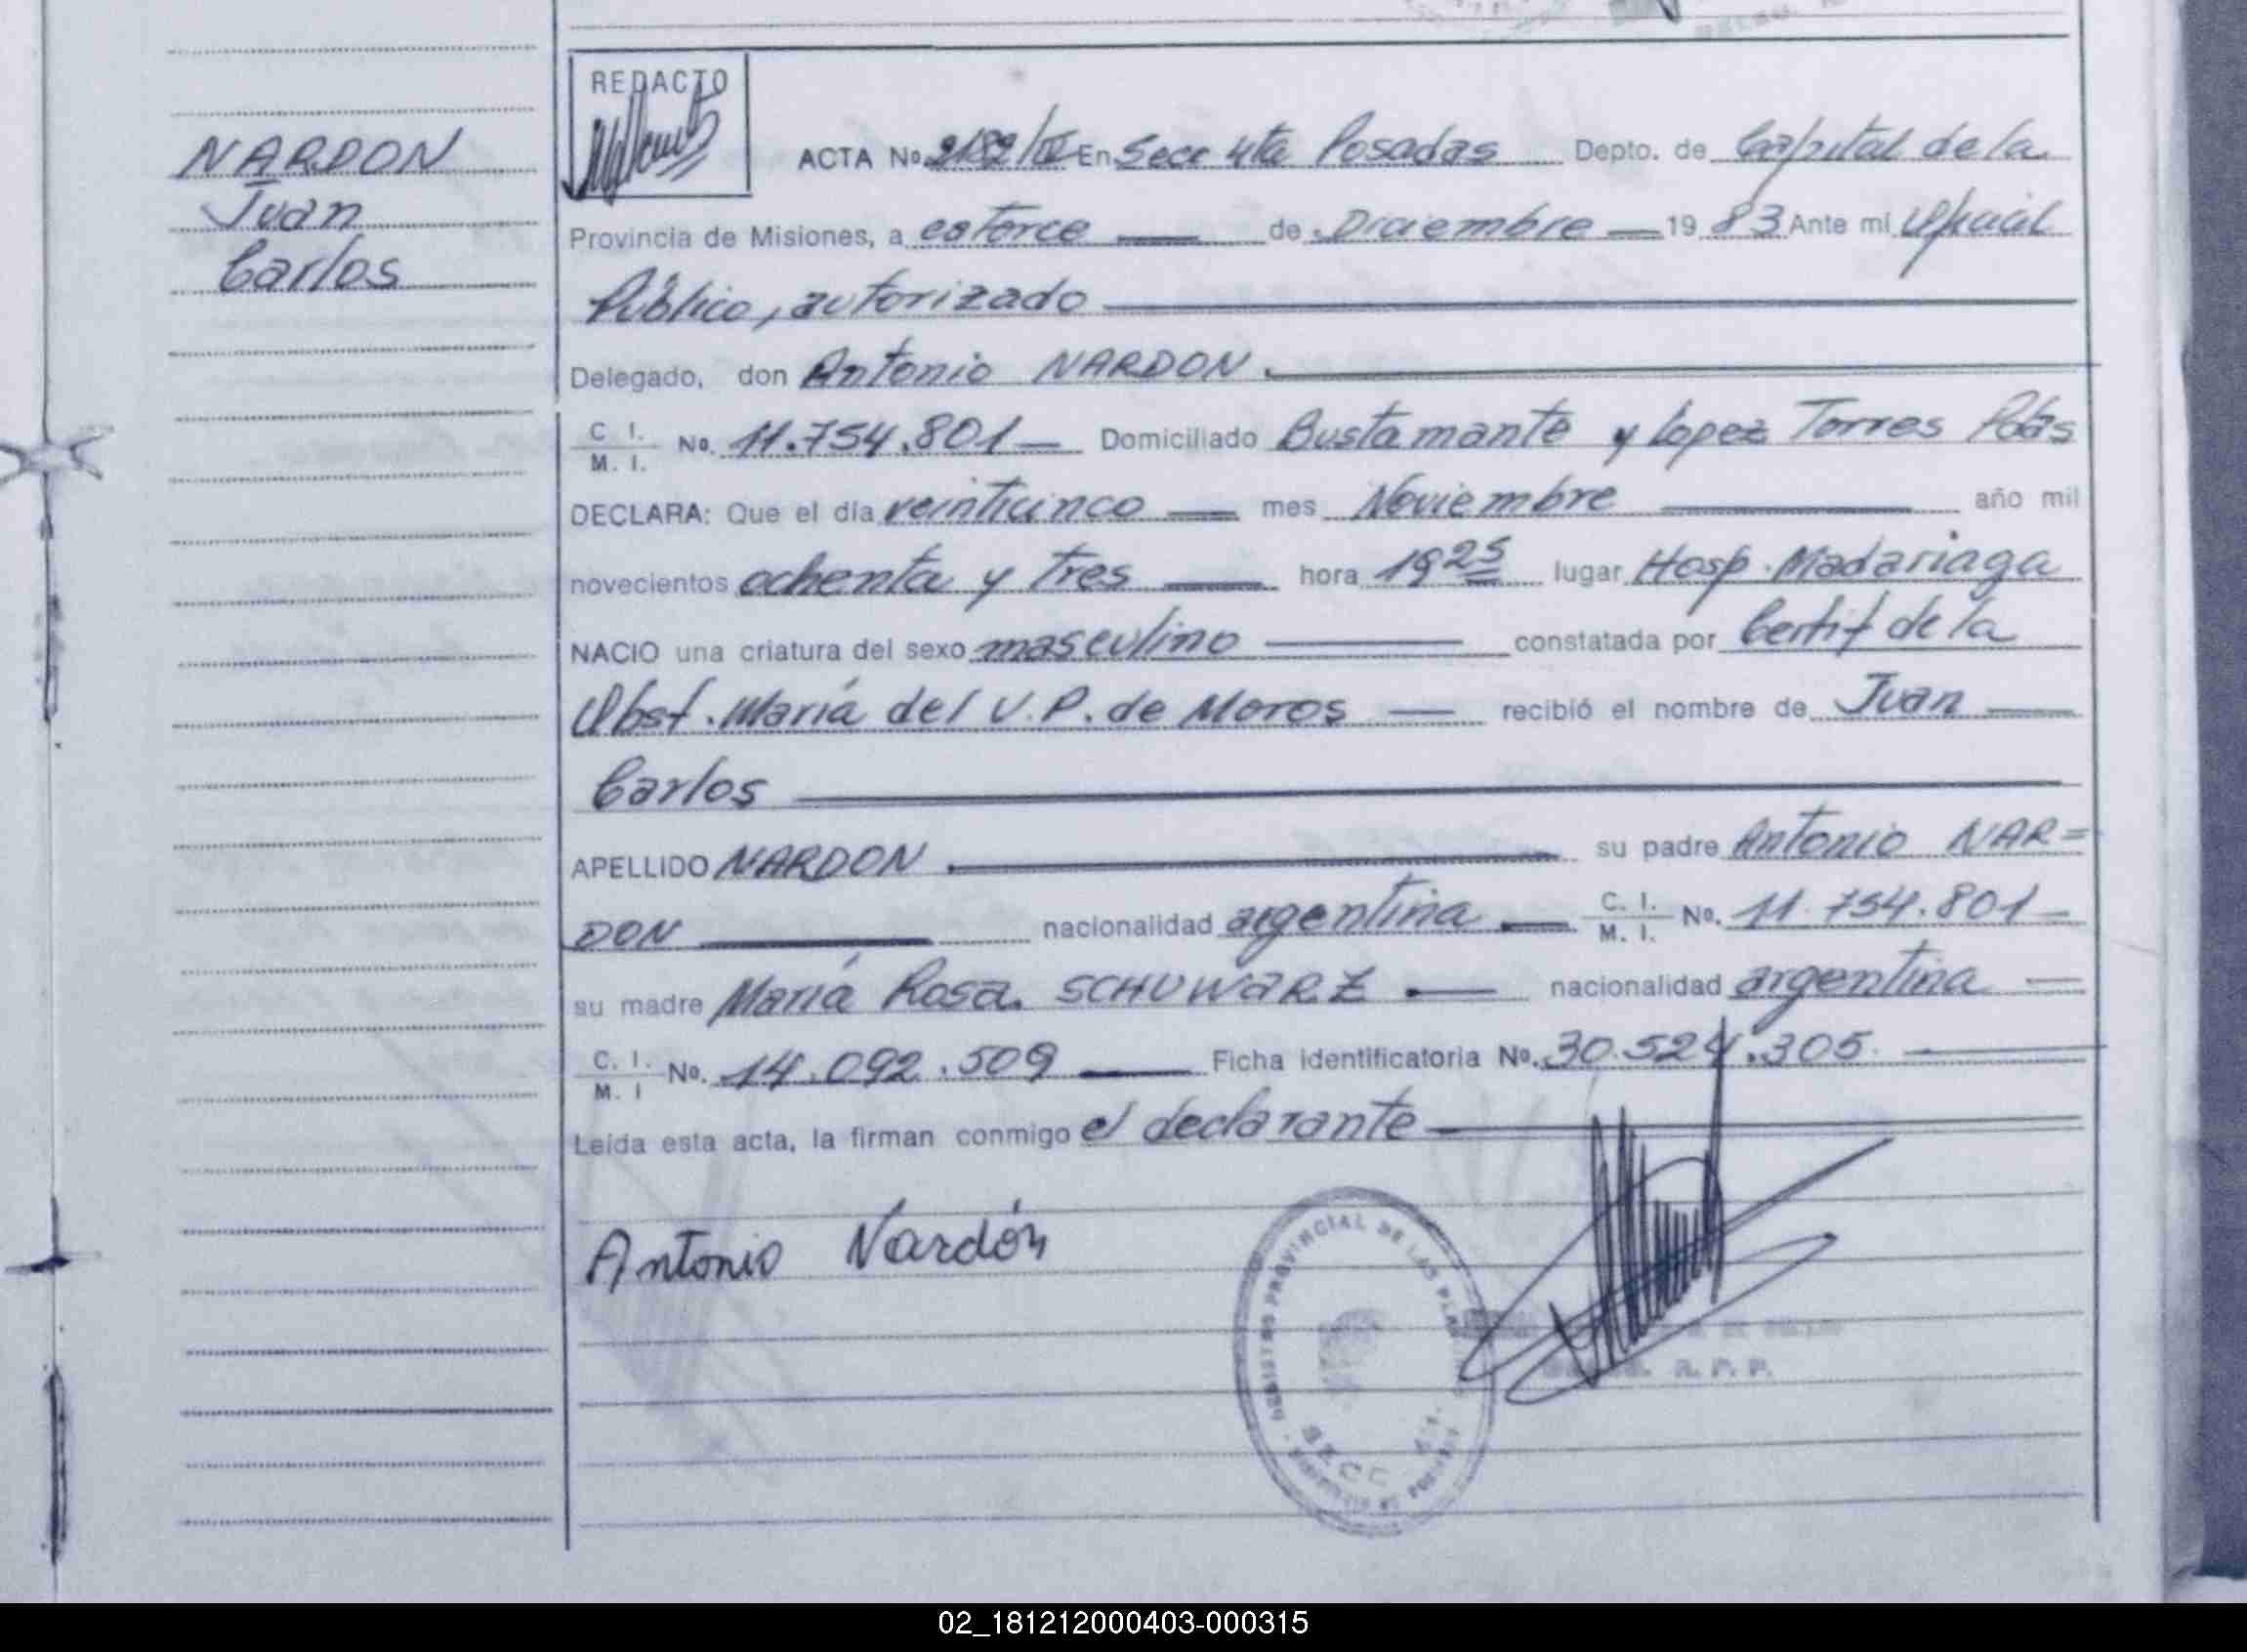 NARDON
Juan
Carlos
REDACTO
ACTA No. 2182/II En Secc 4ta Posadas Depto. de Capital de la
Provincia de Misiones, a catorce de Diciembre 1983 Ante mi Oficial
Público, autorizado
Delegado, don Antonio NARDON.
C. I. M. I. No. 11.754.801 Domiciliado Bustamante y Lopez Torres Pdas
DECLARA: Que el día veinticinco mes Noviembre año mil
novecientos ochenta y tres hora 19 25 lugar Hosp. Madariaga
NACIO una criatura del sexo masculino constatada por Certif de la
Obst. María del V.P. de Moros recibió el nombre de Juan
Carlos
APELLIDO NARDON su padre Antonio NAR=
DON nacionalidad argentina C. I. M. I. No. 11.754.801
su madre María Rosa SCHUWARZ nacionalidad argentina
C. I. M. I No. 14.092.509 Ficha identificatoria No. 30.524.305
Leída esta acta, la firman conmigo el declarante
Antonio Nardón
REGISTRO PROVINCIAL DE LAS
SECC
02_181212000403-000315